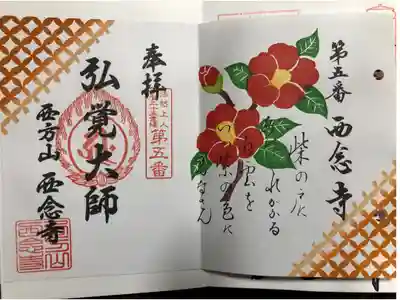 第五番
西念寺
柴の戸に
れかかる
雲を
紫の色に
奉拝
第五番
弘覚大師
西方山 西念寺